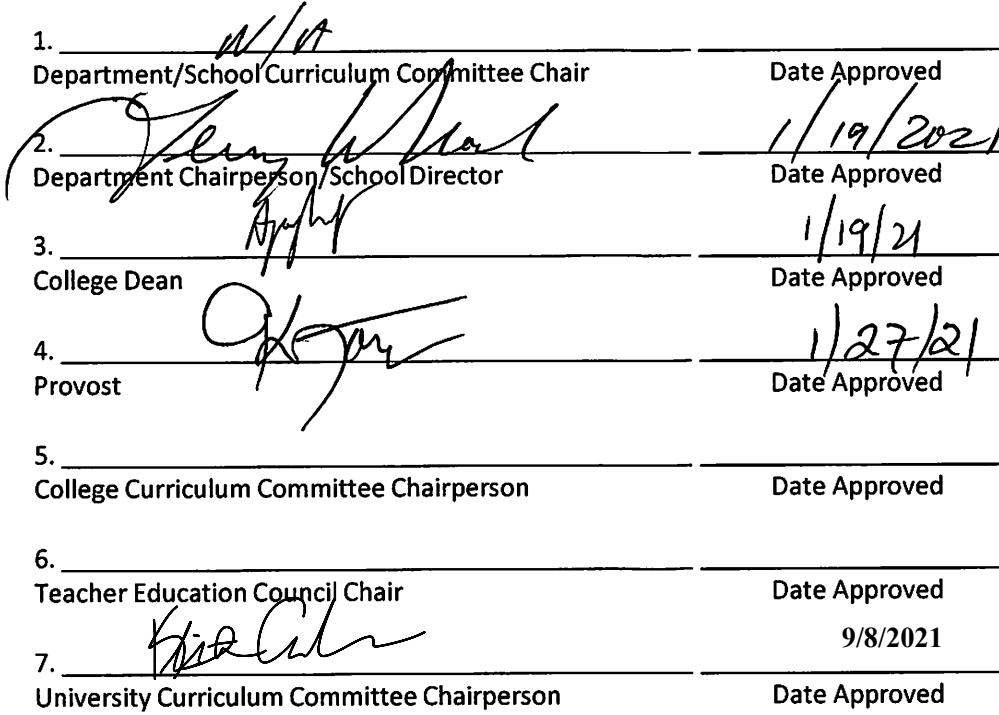 1. N/A
Department/School Curriculum Committee Chair Date Approved
2. 1/19/2021
Department Chairperson/School Director Date Approved
3. 1/19/21
College Dean Date Approved
4. 1/27/21
Provost Date Approved
5.
College Curriculum Committee Chairperson Date Approved
6.
Teacher Education Council Chair Date Approved
7. 9/8/2021
University Curriculum Committee Chairperson Date Approved